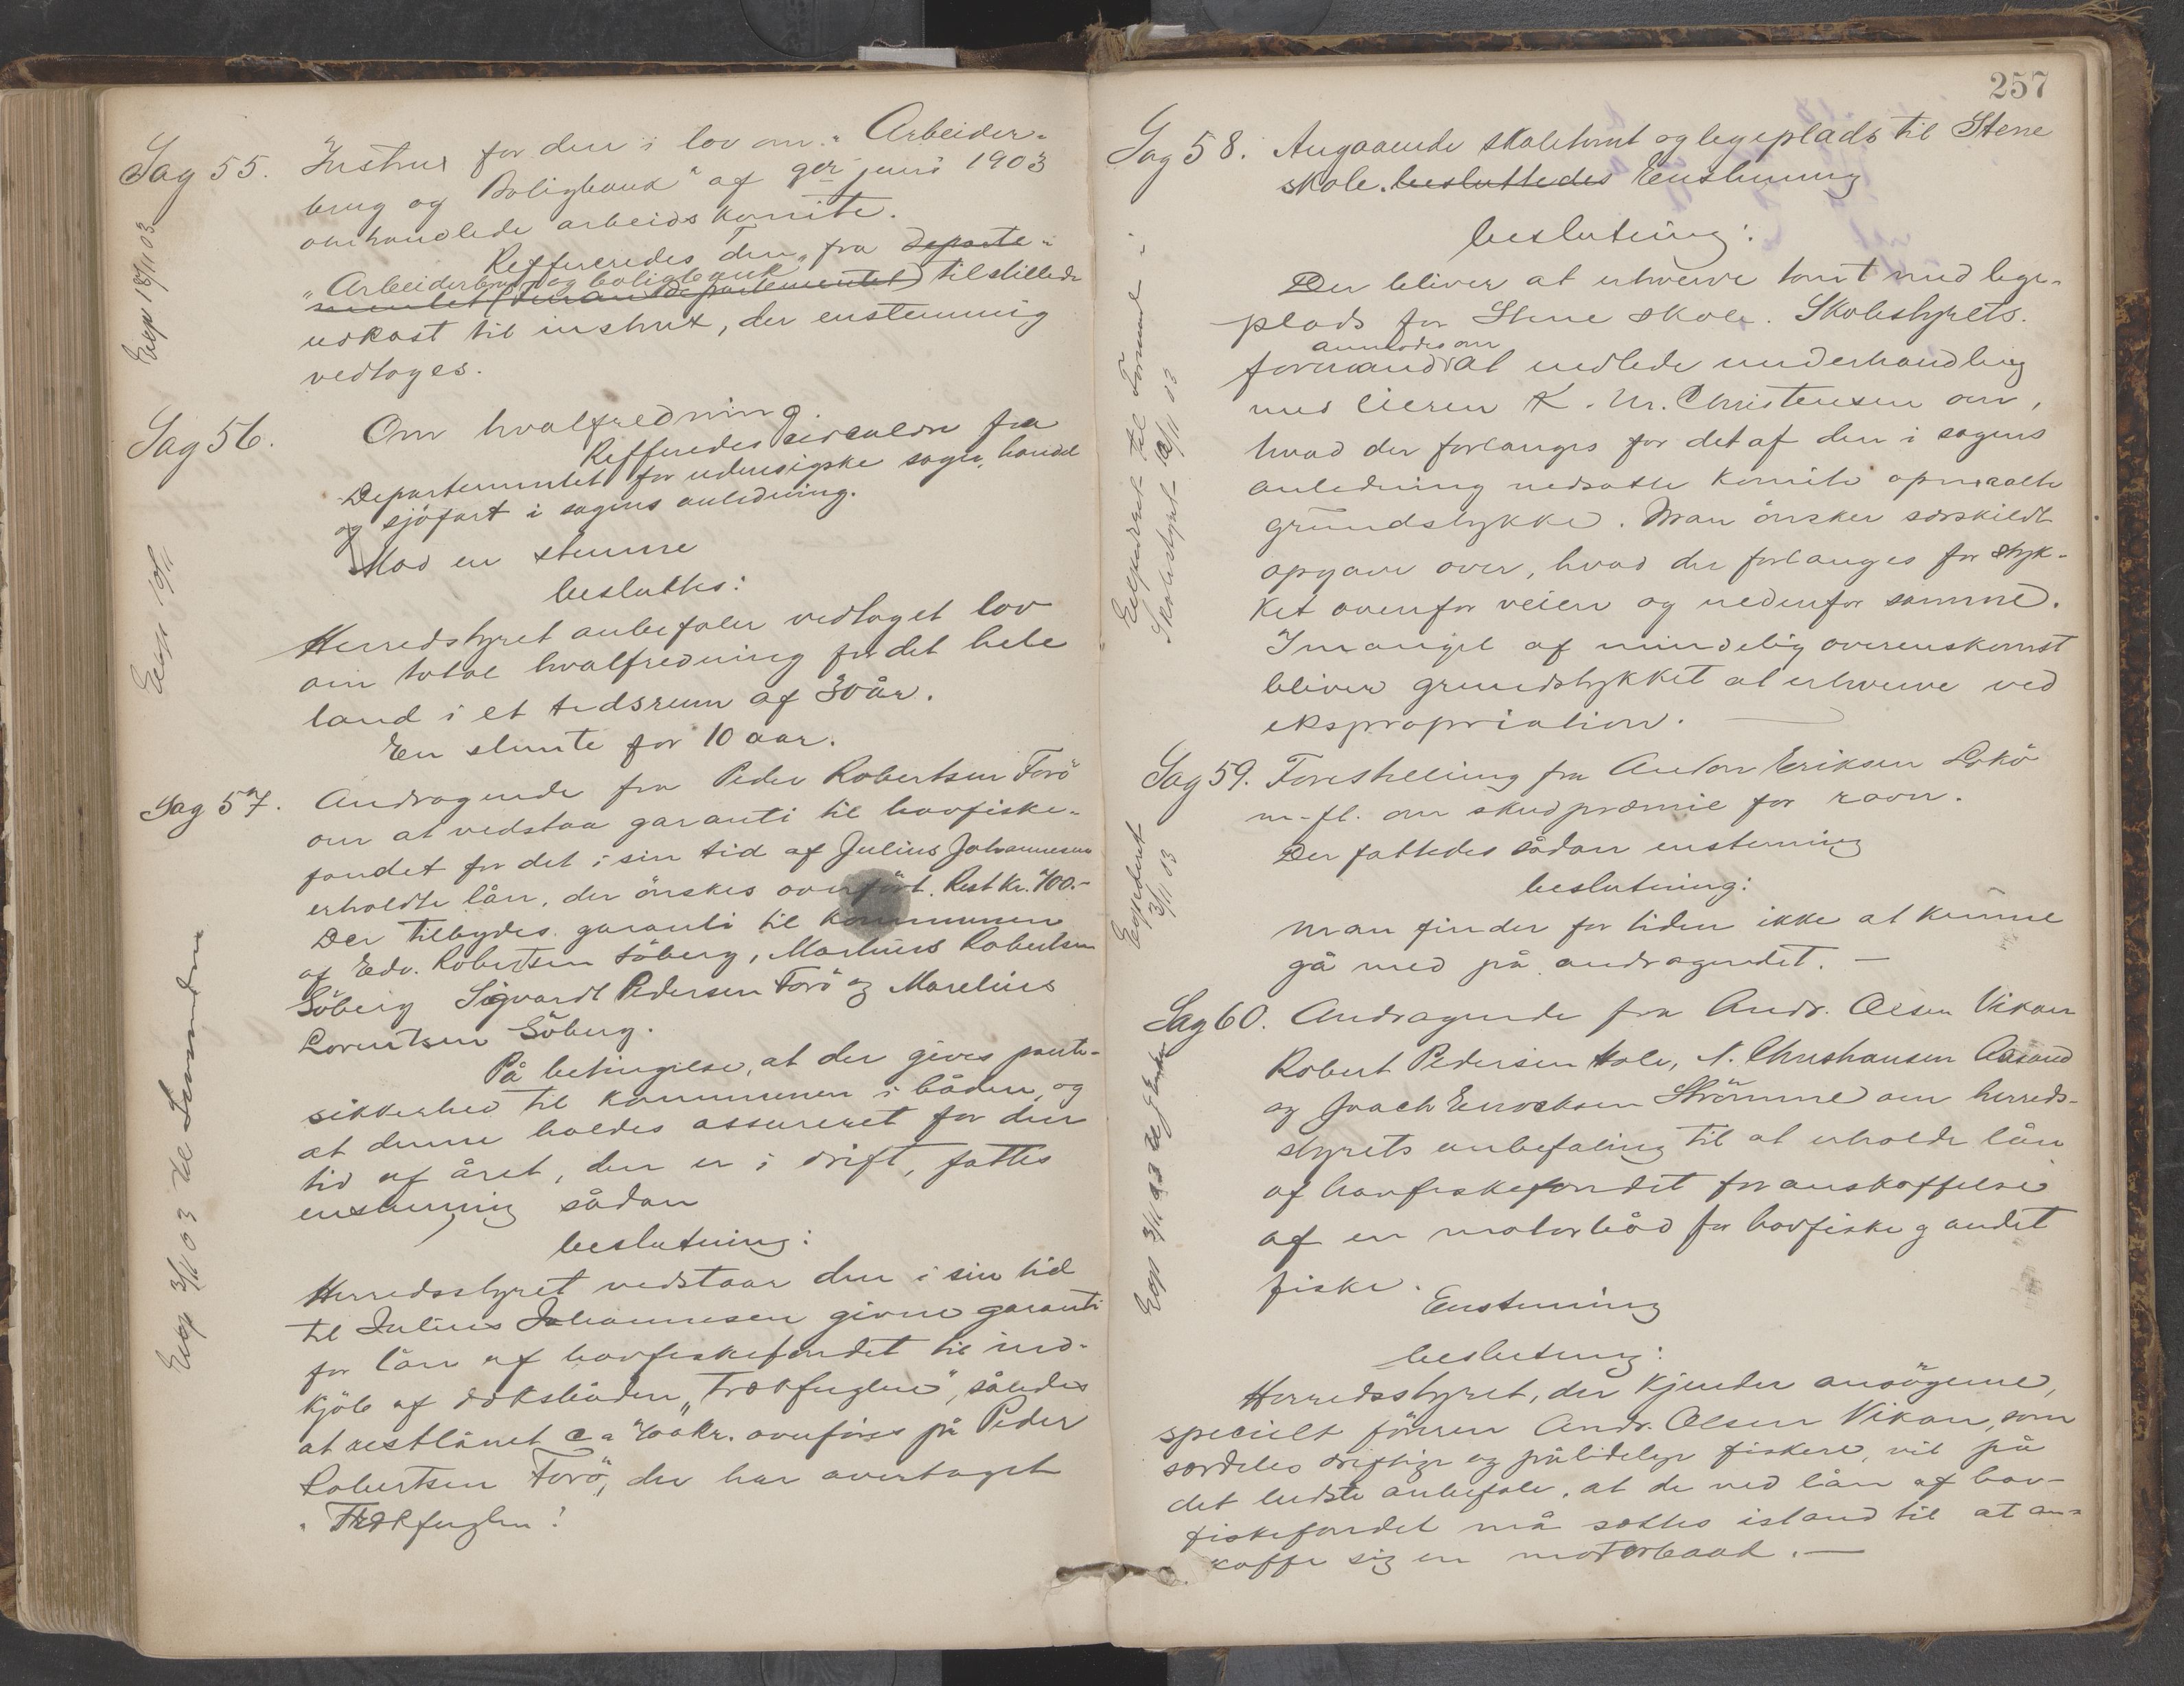 Sag 55. Instrux for den i lov om "Arbeider-
brug og Boligbank" af 9de juni 1903
omhandlede arbeidskomite.
Reffereredes den fra departe-
"Arbeiderbrug og boligbank"
mentet (Finansdepartementet) tilstillede
udkast til instrux, der enstemmig
vedtoges.
Exp 18/11 03
Sag 56. Om hvalfredning.
Refferedes circulære fra
Departementet for udenrigske sager, handel
og sjöfart i sagens anledning.
Mod en stemme
besluttes:
Herredstyret anbefaler vedtaget lov
om total hvalfredning for det hele
land i et tidsrum af 30 år.
En stemte for 10 aar.
Exp 10/11
Sag 57. Andragende fra Peder Robertsen Forö
om at vedstaa garanti til havfiske-
fondet for det i sin tid af Julius Johannesen
erholdte lån, der önskes overfört. Rest Kr. 400.-
Der tilbydes garanti til kommunen
af Edv. Robertsen Söberg, Martinus Robertsen
Söberg Sigvardt Pedersen Forö og Marelius
Lorentsen Söberg.
På betingelse, at der gives pante-
sikkerhed til kommunen i båden, og
at denne holdes assureret for den
tid af året, den er i drift, fattes
enstemmig sådan
beslutning:
Herredsstyret vedstaar den i sin tid
til Julius Johannesen givne garanti
for lån af havfiskefondet til ind-
kjöb af dæksbåden "Trækfuglen", således
at restlånet ca 400 Kr. overföres på Peder
Robertsen Forö, der har overtaget
"Trækfuglen".
Exp 3/11 03 til
257
Sag 58. Angaaende skoletomt og legeplads til Stene
skole. besluttedes Enstemmig
beslutning:
Der bliver at erhverve tomt med lege-
plads for Stene skole. Skolestyrets
anmodes om
formand at indlede underhandling
med eieren K. M. Christensen om,
hvad der forlanges for det af den i sagens
anledning nedsatte komite opmaalte
grundstykke. Man önsker særskildt
opgave over, hvad der forlanges for styk-
ket ovenfor veien og nedenfor samme.
I mangel af mindelig overenskomst
bliver grundstykket at erhverve ved
ekspropriation.
Expederet til Formand i
Skolestyret 10/11 03
Sag 59. Forestilling fra Anton Eriksen Lökö
m. fl. om skudpræmie for ravn.
Der fattedes sådan enstemmig
beslutning:
Man finder for tiden ikke at kunne
gå med på andragendet. —
Expederet
3/11 03
Sag 60. Andragende fra Andr. Olsen Vikan
Robert Pedersen Hole, N. Christiansen Aasand
og Joach Enocksen Strömme om herreds-
styrets anbefaling til at erholde lån
af havfiskefondet for anskaffelse
af en motorbåd for havfiske og andet
fiske.
Enstemmig
beslutning:
Herredsstyret, der kjender ansögerne,
specielt föreren Andr. Olsen Vikan, som
særdeles driftige og pålidelige fiskere, vil på
det bedste anbefale, at de ved lån af hav-
fiskefondet må sættes istand til at an-
skaffe sig en motorbaad. —
Exp 3/11 03 til